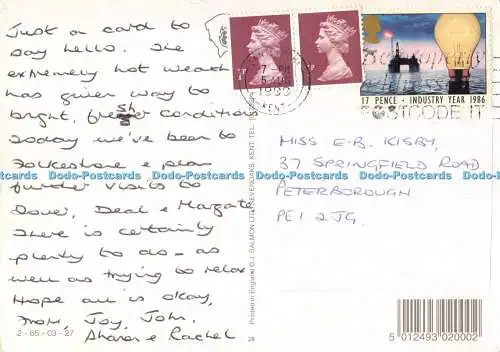 Just a card to
say hello. The
extremely hot weather
has given way to
bright, fresh conditions
Today we've been to
Folkestone & plan
further visits to
Dover, Deal & Margate
There is certainly
plenty to do - as
well as trying to relax
Hope all is okay,
From, Joy, John,
Sharon & Rachel
2-65-03-27
Printed in England D.J. SALMON LTD, SEVENOAKS, KENT. TEL.
28
KENT
17 PENCE · INDUSTRY YEAR 1986
POSTCODE IT
MISS E.B. KISBY,
37 SPRINGFIELD ROAD
PETERBOROUGH
PE1 2JG.
5 012493 020002
Dodo-Postcards Dodo-Postcards Dodo-Postcards Dodo-Postcards